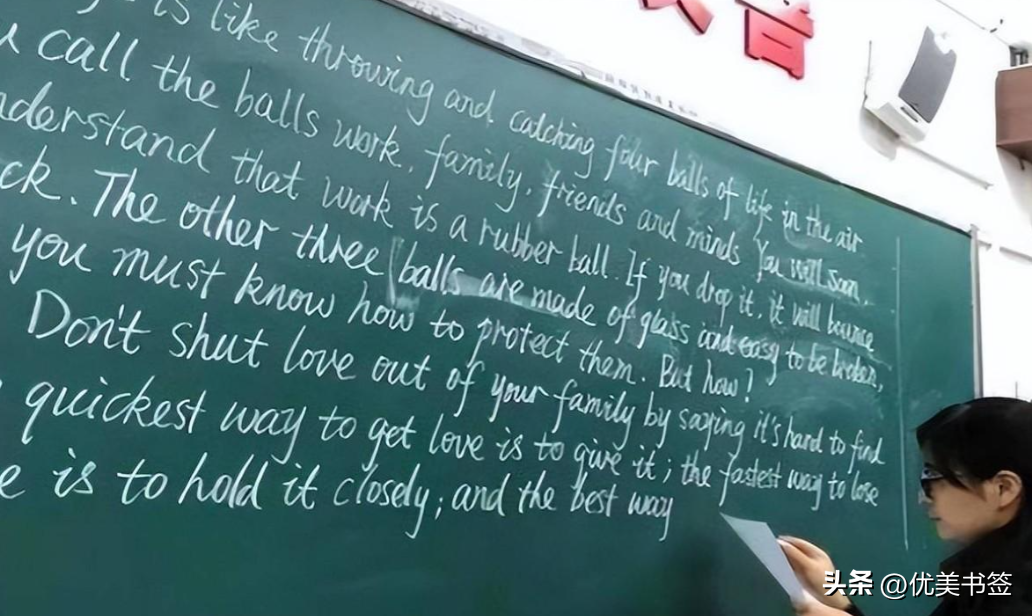 is like throwing and catching four balls of life in the air
call the balls work, family, friends and minds. You will soon
nderstand that work is a rubber ball. If you drop it, it will bounce
ck. The other three balls are made of glass and easy to be broken,
you must know how to protect them. But how?
Don't shut love out of your family by saying it's hard to find
quickest way to get love is to give it; the fastest way to lose
e is to hold it closely; and the best way
头条 @优美书签